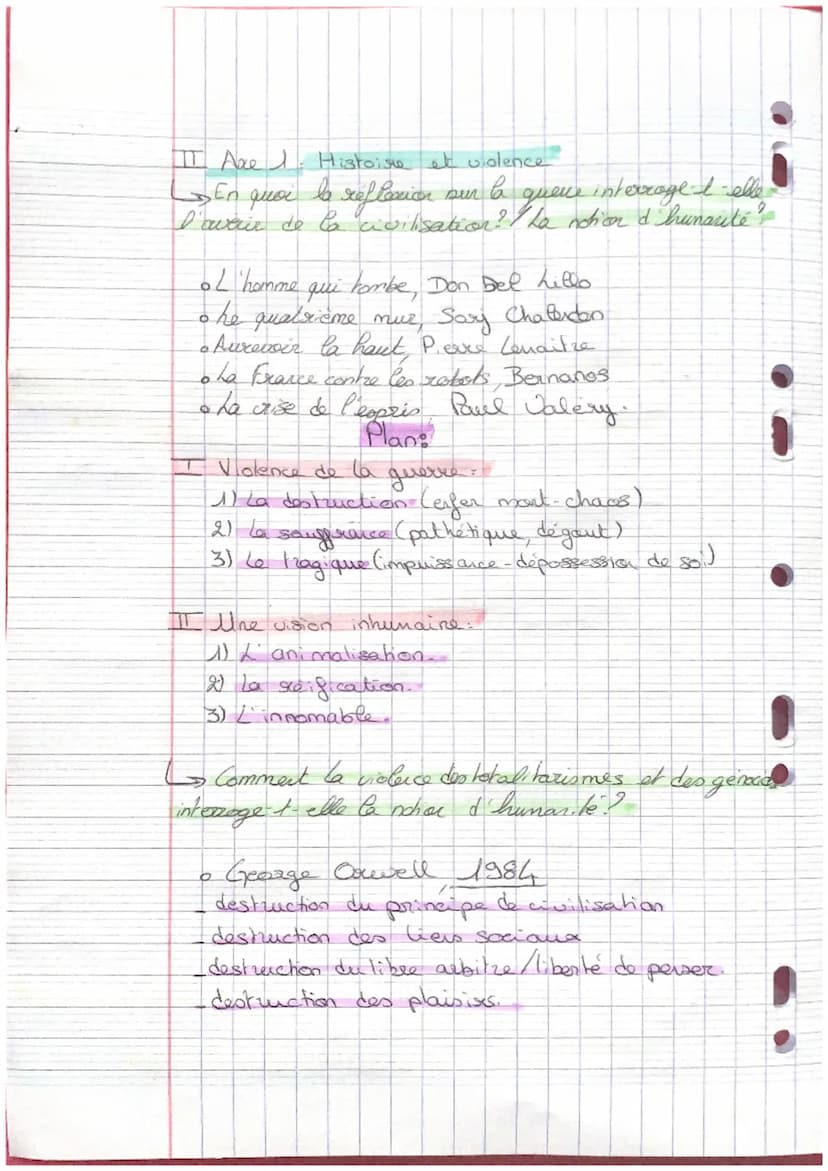 II Axe 1 : Histoire et violence
↳ En quoi la réflexion sur la guerre interroge-t-elle
l'avenir de la civilisation? / La notion d'humanité?
o L'homme qui tombe, Don Del Lillo
o Le quatrième mur, Sorj Chalendon
o Aurevoir la haut, Pierre Lemaitre
o La France contre les robots, Bernanos
o La crise de l'espris, Paul Valéry.
Plan:
I Violence de la guerre :
1) La destruction (enfer mort-chaos)
2) La souffrance (pathétique, dégout)
3) Le tragique (impuissance - dépossession de soi)
II Une vision inhumaine :
1) L'animalisation.
2) La réification.
3) L'innomable.
↳ Comment la violence des totalitarismes et des génocides
interroge-t-elle la notion d'humanité?
o George Orwell, 1984
_ destruction du principe de civilisation
_ destruction des liens sociaux
_ destruction du libre arbitre / liberté de penser.
_ destruction des plaisirs.